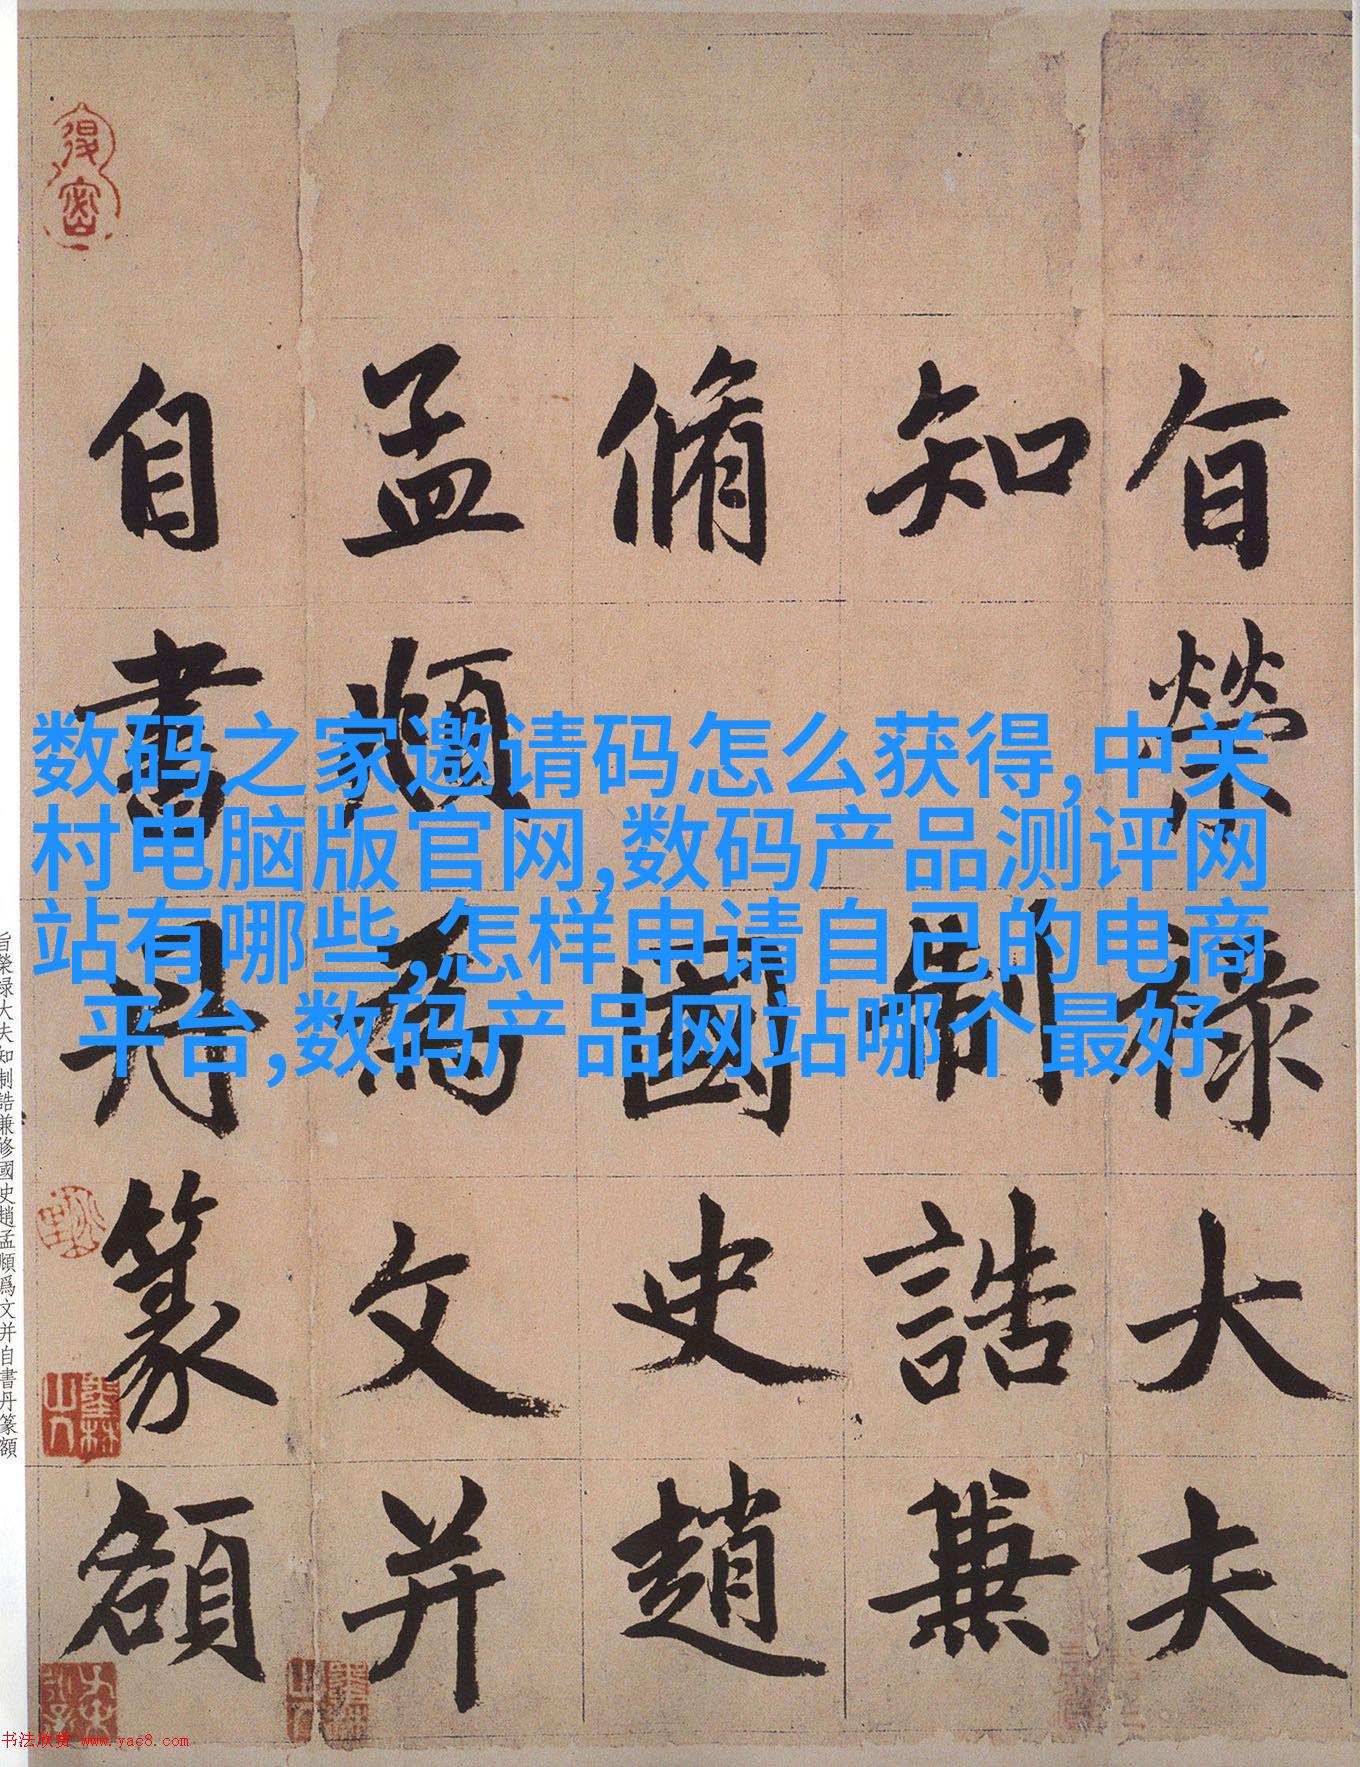 数码之家邀请码怎么获得,中关
村电脑版官网,数码产品测评网
站有哪些,怎样申请自己的电商
平台,数码产品网站哪个最好
旨榮禄大夫
知制誥兼
脩國史趙
孟頫為文并
自書丹篆額
旨榮禄大夫知制誥兼修國史趙孟頫為文并自書丹篆額
书法欣赏 www.yac8.com